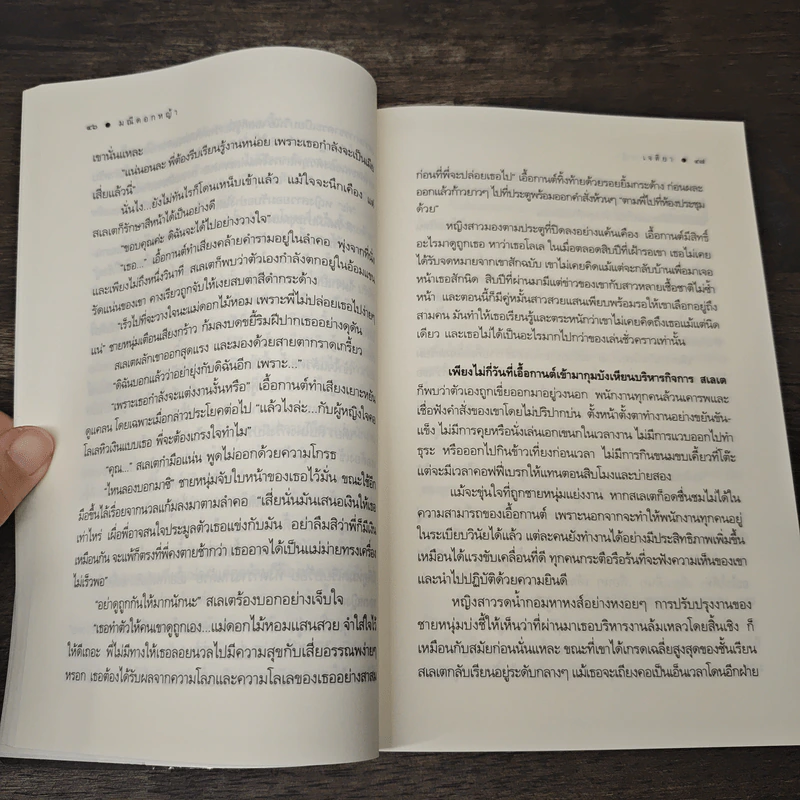 ๔๖ • มณีดอกหญ้า
เขานั่นแหละ
"แน่นอนละ พี่ต้องรีบเรียนรู้งานหน่อย เพราะเธอกำลังจะเป็นเมีย
เสี่ยแล้วนี่"
นั่นไง...ยังไม่ทันไรก็โดนเหน็บเข้าแล้ว แม้ใจจะนึกเคือง แต่
สเลเตก็รักษาสีหน้าได้เป็นอย่างดี
"ขอบคุณค่ะ ดิฉันจะได้ไปอย่างวางใจ"
"เธอ..." เอื้อกานต์ทำเสียงคล้ายคำรามอยู่ในลำคอ พุ่งจากที่นั่ง
และเพียงไม่ถึงหนึ่งวินาที สเลเตก็พบว่าตัวเองกำลังตกอยู่ในอ้อมแขน
รัดแน่นของเขา คางเรียวถูกจับให้เงยสบตาสีดำกระด้าง
"เร็วไปที่จะวางใจนะแม่ดอกไม้หอม เพราะพี่ไม่ปล่อยเธอไปง่ายๆ
แน่" ชายหนุ่มเตือนเสียงกร้าว ก้มลงบดขยี้ริมฝีปากเธออย่างดุดัน
สเลเตผลักเขาออกสุดแรง และมองด้วยสายตากราดเกรี้ยว
"ดิฉันบอกแล้วว่าอย่ายุ่งกับดิฉันอีก เพราะ..."
"เพราะเธอกำลังจะแต่งงานงั้นหรือ" เอื้อกานต์ทำเสียงเยาะหยัน
ดูแคลน โดยเฉพาะเมื่อกล่าวประโยคต่อไป "แล้วไงล่ะ...กับผู้หญิงใจคอ
โลเลหิวเงินแบบเธอ พี่จะต้องเกรงใจทำไม"
"คุณ..." สเลเตกำมือแน่น พูดไม่ออกด้วยความโกรธ
"ไหนลองบอกมาซิ" ชายหนุ่มจับใบหน้าของเธอไว้มั่น ขณะใช้อีก
มือขึ้นไล้เรื่อยจากนวลแก้มลงมาตามลำคอ "เสี่ยนั่นมันเสนอเงินให้เธอ
เท่าไหร่ เผื่อพี่อาจสนใจประมูลตัวเธอแข่งกับมัน อย่าลืมสิว่าพี่ก็มีเงิน
เหมือนกัน จะแพ้ก็ตรงที่พี่คงตายช้ากว่า เธออาจได้เป็นแม่ม่ายทรงเครื่อง
ไม่เร็วพอ"
"อย่าดูถูกกันให้มากนักนะ" สเลเตร้องบอกอย่างเจ็บใจ
"เธอทำตัวให้คนเขาดูถูกเอง...แม่ดอกไม้หอมแสนสวย จำใส่ใจไว้
ให้ดีเถอะ พี่ไม่มีทางให้เธอลอยนวลไปมีความสุขกับเสี่ยอรรณพง่ายๆ
หรอก เธอต้องได้รับผลจากความโลภและความโลเลของเธออย่างสาสม
เจติยา • ๔๗
ก่อนที่พี่จะปล่อยเธอไป" เอื้อกานต์ทิ้งท้ายด้วยรอยยิ้มกระด้าง ก่อนผละ
ออกแล้วก้าวยาวๆ ไปที่ประตูพร้อมออกคำสั่งห้วนๆ "ตามพี่ไปที่ห้องประชุม
ด้วย"
หญิงสาวมองตามประตูที่ปิดลงอย่างแค้นเคือง เอื้อกานต์มีสิทธิ์
อะไรมาดูถูกเธอ หาว่าเธอโลเล ในเมื่อตลอดสิบปีที่เฝ้ารอเขา เธอไม่เคย
ได้รับจดหมายจากเขาสักฉบับ เขาไม่เคยคิดแม้แต่จะกลับบ้านเพื่อมาเจอ
หน้าเธอสักนิด สิบปีที่ผ่านมามีแต่ข่าวของเขากับสาวหลายเชื้อชาติไม่ซ้ำ
หน้า และตอนนี้ก็มีคู่หมั้นสาวสวยแสนเพียบพร้อมรอให้เขาเลือกอยู่ถึง
สามคน มันทำให้เธอเรียนรู้และตระหนักว่าเขาไม่เคยคิดถึงเธอแม้แต่นิด
เดียว และเธอไม่ได้เป็นอะไรมากไปกว่าของเล่นชั่วคราวเท่านั้น
เพียงไม่กี่วันที่เอื้อกานต์เข้ามากุมบังเหียนบริหารกิจการ สเลเต
ก็พบว่าตัวเองถูกเขี่ยออกมาอยู่วงนอก พนักงานทุกคนล้วนเคารพและ
เชื่อฟังคำสั่งของเขาโดยไม่ปริปากบ่น ตั้งหน้าตั้งตาทำงานอย่างขยันขัน-
แข็ง ไม่มีการคุยหรือนั่งเล่นเอกเขนกในเวลางาน ไม่มีการแวบออกไปทำ
ธุระ หรือออกไปกินข้าวเที่ยงก่อนเวลา ไม่มีการกินขนมขบเคี้ยวที่โต๊ะ
แต่จะมีเวลาคอฟฟี่เบรกให้แทนตอนสิบโมงและบ่ายสอง
แม้จะขุ่นใจที่ถูกชายหนุ่มแย่งงาน หากสเลเตก็อดชื่นชมไม่ได้ใน
ความสามารถของเอื้อกานต์ เพราะนอกจากจะทำให้พนักงานทุกคนอยู่
ในระเบียบวินัยได้แล้ว แต่ละคนยังทำงานได้อย่างมีประสิทธิภาพเพิ่มขึ้น
เหมือนได้แรงขับเคลื่อนที่ดี ทุกคนกระตือรือร้นที่จะฟังความเห็นของเขา
และนำไปปฏิบัติด้วยความยินดี
หญิงสาวรดน้ำกอมหาหงส์อย่างหงอยๆ การปรับปรุงงานของ
ชายหนุ่มบ่งชี้ให้เห็นว่าที่ผ่านมาเธอบริหารงานล้มเหลวโดยสิ้นเชิง ก็
เหมือนกับสมัยก่อนนั่นแหละ ขณะที่เขาได้เกรดเฉลี่ยสูงสุดของชั้นเรียน
สเลเตกลับเรียนอยู่ระดับกลางๆ แม้เธอจะเถียงคอเป็นเอ็นเวลาโดนอีกฝ่าย